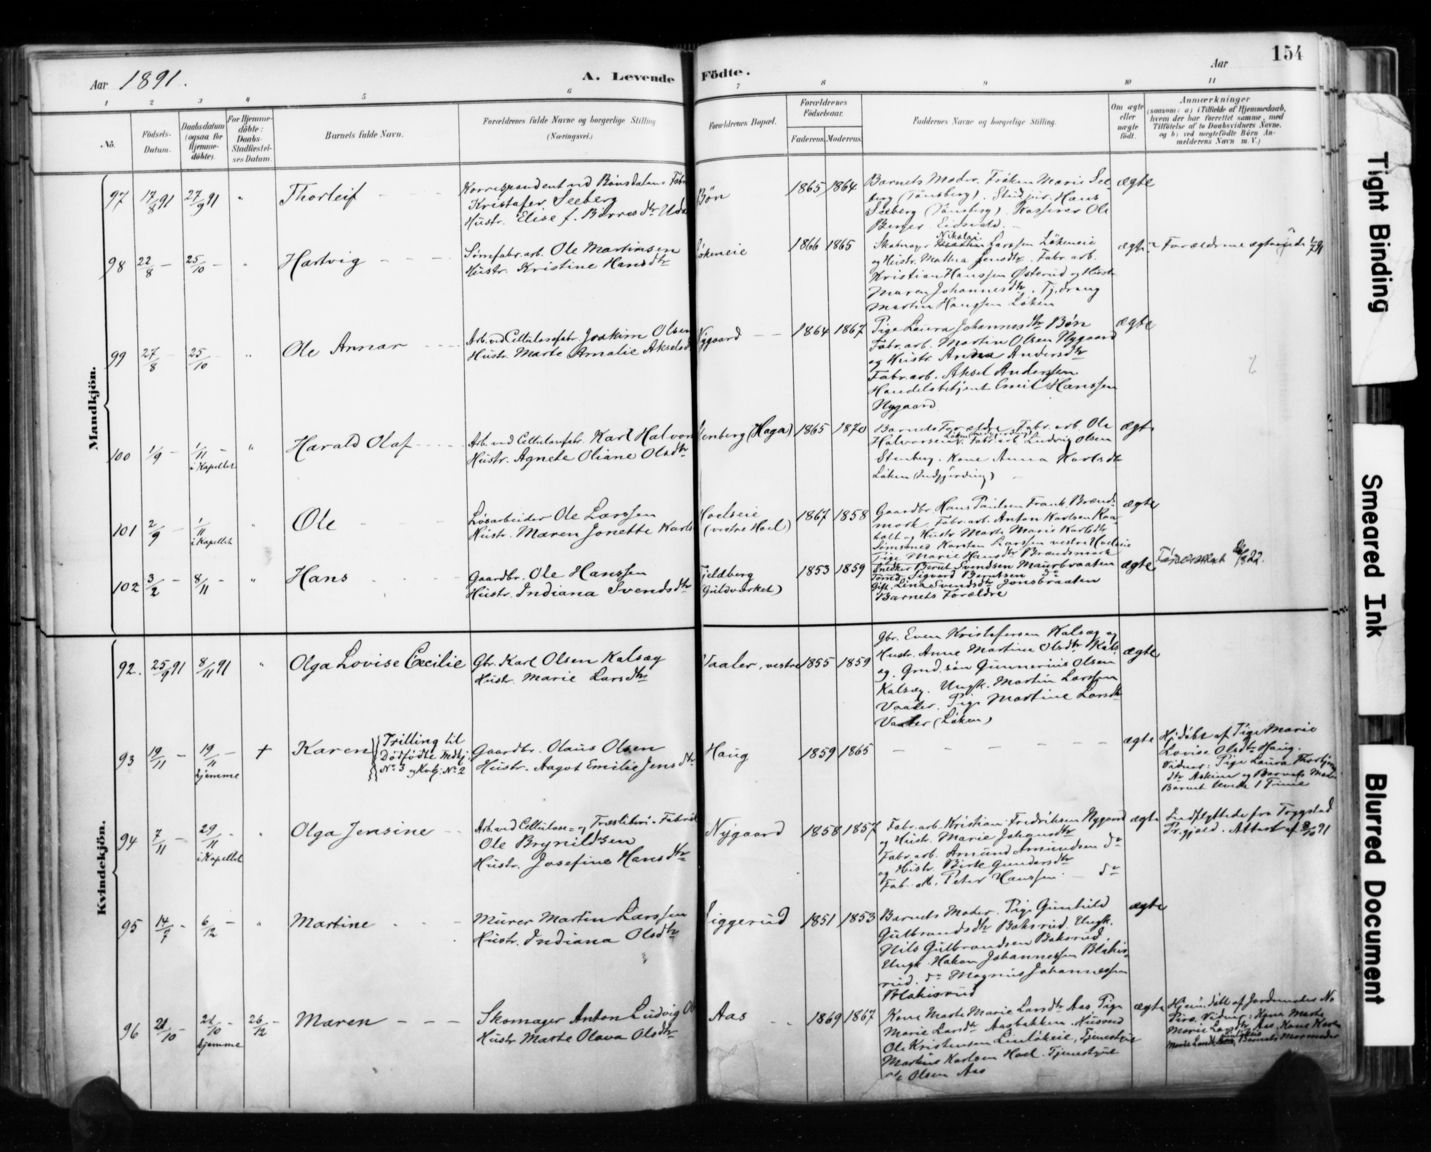 154
Aar 1891.
A. Levende
Födte.
Aar
1 2 3 4 5 6 7 8 9 10 11
No.
Födsels-
Datum.
Daabsdatum
(ogsaa for
Hjemme-
döbte).
For Hjemme-
döbte:
Daabs-
Stadfæstel-
ses Datum
Barnets fulde Navn.
Forældrenes fulde Navne og borgerlige Stilling
(Næringsvei.)
Forældrenes Bopæl.
Forældrenes
Födselsaar.
Faderens. Moderens.
Faddernes Navne og borgerlige Stilling.
Om ægte
eller
uægte
födt.
Anmærkninger
Mandkjön.
97 17/8 91 27/9 91 " Thorleif
Korrespondent ved Bönsdalens Fabr
Kristofer Seeberg
Hustr. Elise f. Borresdtr
Bön 1865 1864
Barnets Moder, Fröken Marie See-
berg (Tönsberg), Studjur. Hans
Seeberg (Tönsberg), Kasserer Ole
Berger Eidsvold.
ægte
98 22/8 25/10 Hartvig
Ole Martinsen
Hustr. Kristine Hansdtr
1866 1865
Nikolai
Larssen Lökeneie
og Hustr. Mathea Jensdtr. Fabr. arb.
Kristian Hanssen Österud og Hustr.
Maren Johannesdtr. Tj.dreng
Martin Hanssen Löken
ægte
99 27/8 25/10 " Ole Annar
Arb. ved Cellulosefabr. Joakim Olsen
Hustr. Marte Amalie Akselsd
Nygaard 1864 1867
Pige Laura Johannesdtr Bön
Fabr. arb. Martin Olsen Nygaard
og Hustr. Andrea Andersdtr
Fabr. arb. Aksel Anderssen
Handelsbetjent Emil Hanssen
Nygaard
ægte
100 1/9 1/11 i Kapellet " Harald Olaf
Arb. ved Cellulosefabr. Karl Halvor
Hustr. Agnete Oliane Olsdtr
Stenberg (Haga) 1865 1870
Barnets Forældre, Fabr. arb. Ole
Halvorsen, Fabr. arb. Ludvig Olsen
Stenberg. Kone Anna Karlsdtr
Löken
ægte
101 2/9 1/11 i Kapellet " Ole
Lösarbeider Ole Larssen
Hustr. Maren Jonette Karls
Hoelseie
(vestre Hoel)
1867 1858
Gaardbr. Hans Paulsen Frank Brænd-
mork, Fabr. arb. Anton Karlsen Raa-
holt og Hustr. Marte Marie Karlsdtr
Karsten Larssen vestre Hoelseie
Pige Marie Hansdtr Brændmork
ægte
102 3/2 8/11 " Hans
Gaardbr. Ole Hanssen
Hustr. Indiana Svendsdtr
Fjeldberg
(Guldværket)
1853 1859
Snedker Bernt Svendsen Maurbraaten
Sigvard Berntsen do
Gift. Lina Svendsdtr Jonsbraaten
Barnets Forældre
ægte
Kvindekjön.
92. 25/9 91 8/11 91 " Olga Lovise Cæcilie
Gbr. Karl Olsen Kalsæg
Hustr. Marie Larsdtr
Vaaler, vestre 1855 1859
Gbr. Even Kristofersen Kalsæg og
Hustr. Anne Martine Olsdtr Kals
og Grnd. sön Gunnerius Olsen
Kalsæg. Ungk. Martin Larssen
Vaaler. Pige Martine Larsdtr
Vaaler (Löken)
ægte
93 19/11 19/11 hjemme + Karen
Trilling til
Dödfödte Mdkj.
No 3 og Kvkj. No 2
Gaardbr. Olaus Olsen
Hustr. Aagot Emilie Jensdtr
Haug 1859 1865
ægte
Hjdöbt af Pige Marie
Lovise Olsdtr Haug.
Vidner: Pige Laura Thorbjörns
dtr Askim og Barnets Moder
Barnet levede 1 Time
94 7/11 29/11 i Kapellet Olga Jensine
Arb. ved Cellulose- og Træsliberi-Fabrik
Ole Brynildsen
Hustr. Josefine Hansdtr
Nygaard 1858 1857
Fabr. arb. Kristian Fredriksen Nygaard
og Hustr. Marie Johansdtr
Fabr. arb. Amund Amundsen do
og Hustr. Birte Gundersdtr
Peter Hanssen do
ægte
Indflyttede fra Trygstad
Pr.gjeld. Attest af
95 14/7 6/12 " Martine
Murer Martin Larssen
Hustr. Indiana Olsdtr
1851 1853
Barnets Moder, Pige Gunhild
Gulbrandsdtr Baksrud. Ungk.
Nils Gulbrandsen Baksrud,
Ungk. Hakon Johannessen Blakis-
rud. do Magnus Johannessen
Blakisrud
ægte
96 21/10 21/10 hjemme 26/12 Maren
Skomager Anton Ludvig
Hustr. Marte Olava Olsdtr
Aas 1869 1867
Kone Marte Marie Larsdtr Aas. Pige
Marie Larsdtr Aasbakken.
Ole Kristensen Tjenestpige
Karlsen Hoel. Tjenestpige
Olsen Aas
ægte
Tight Binding
Smeared Ink
Blurred Document